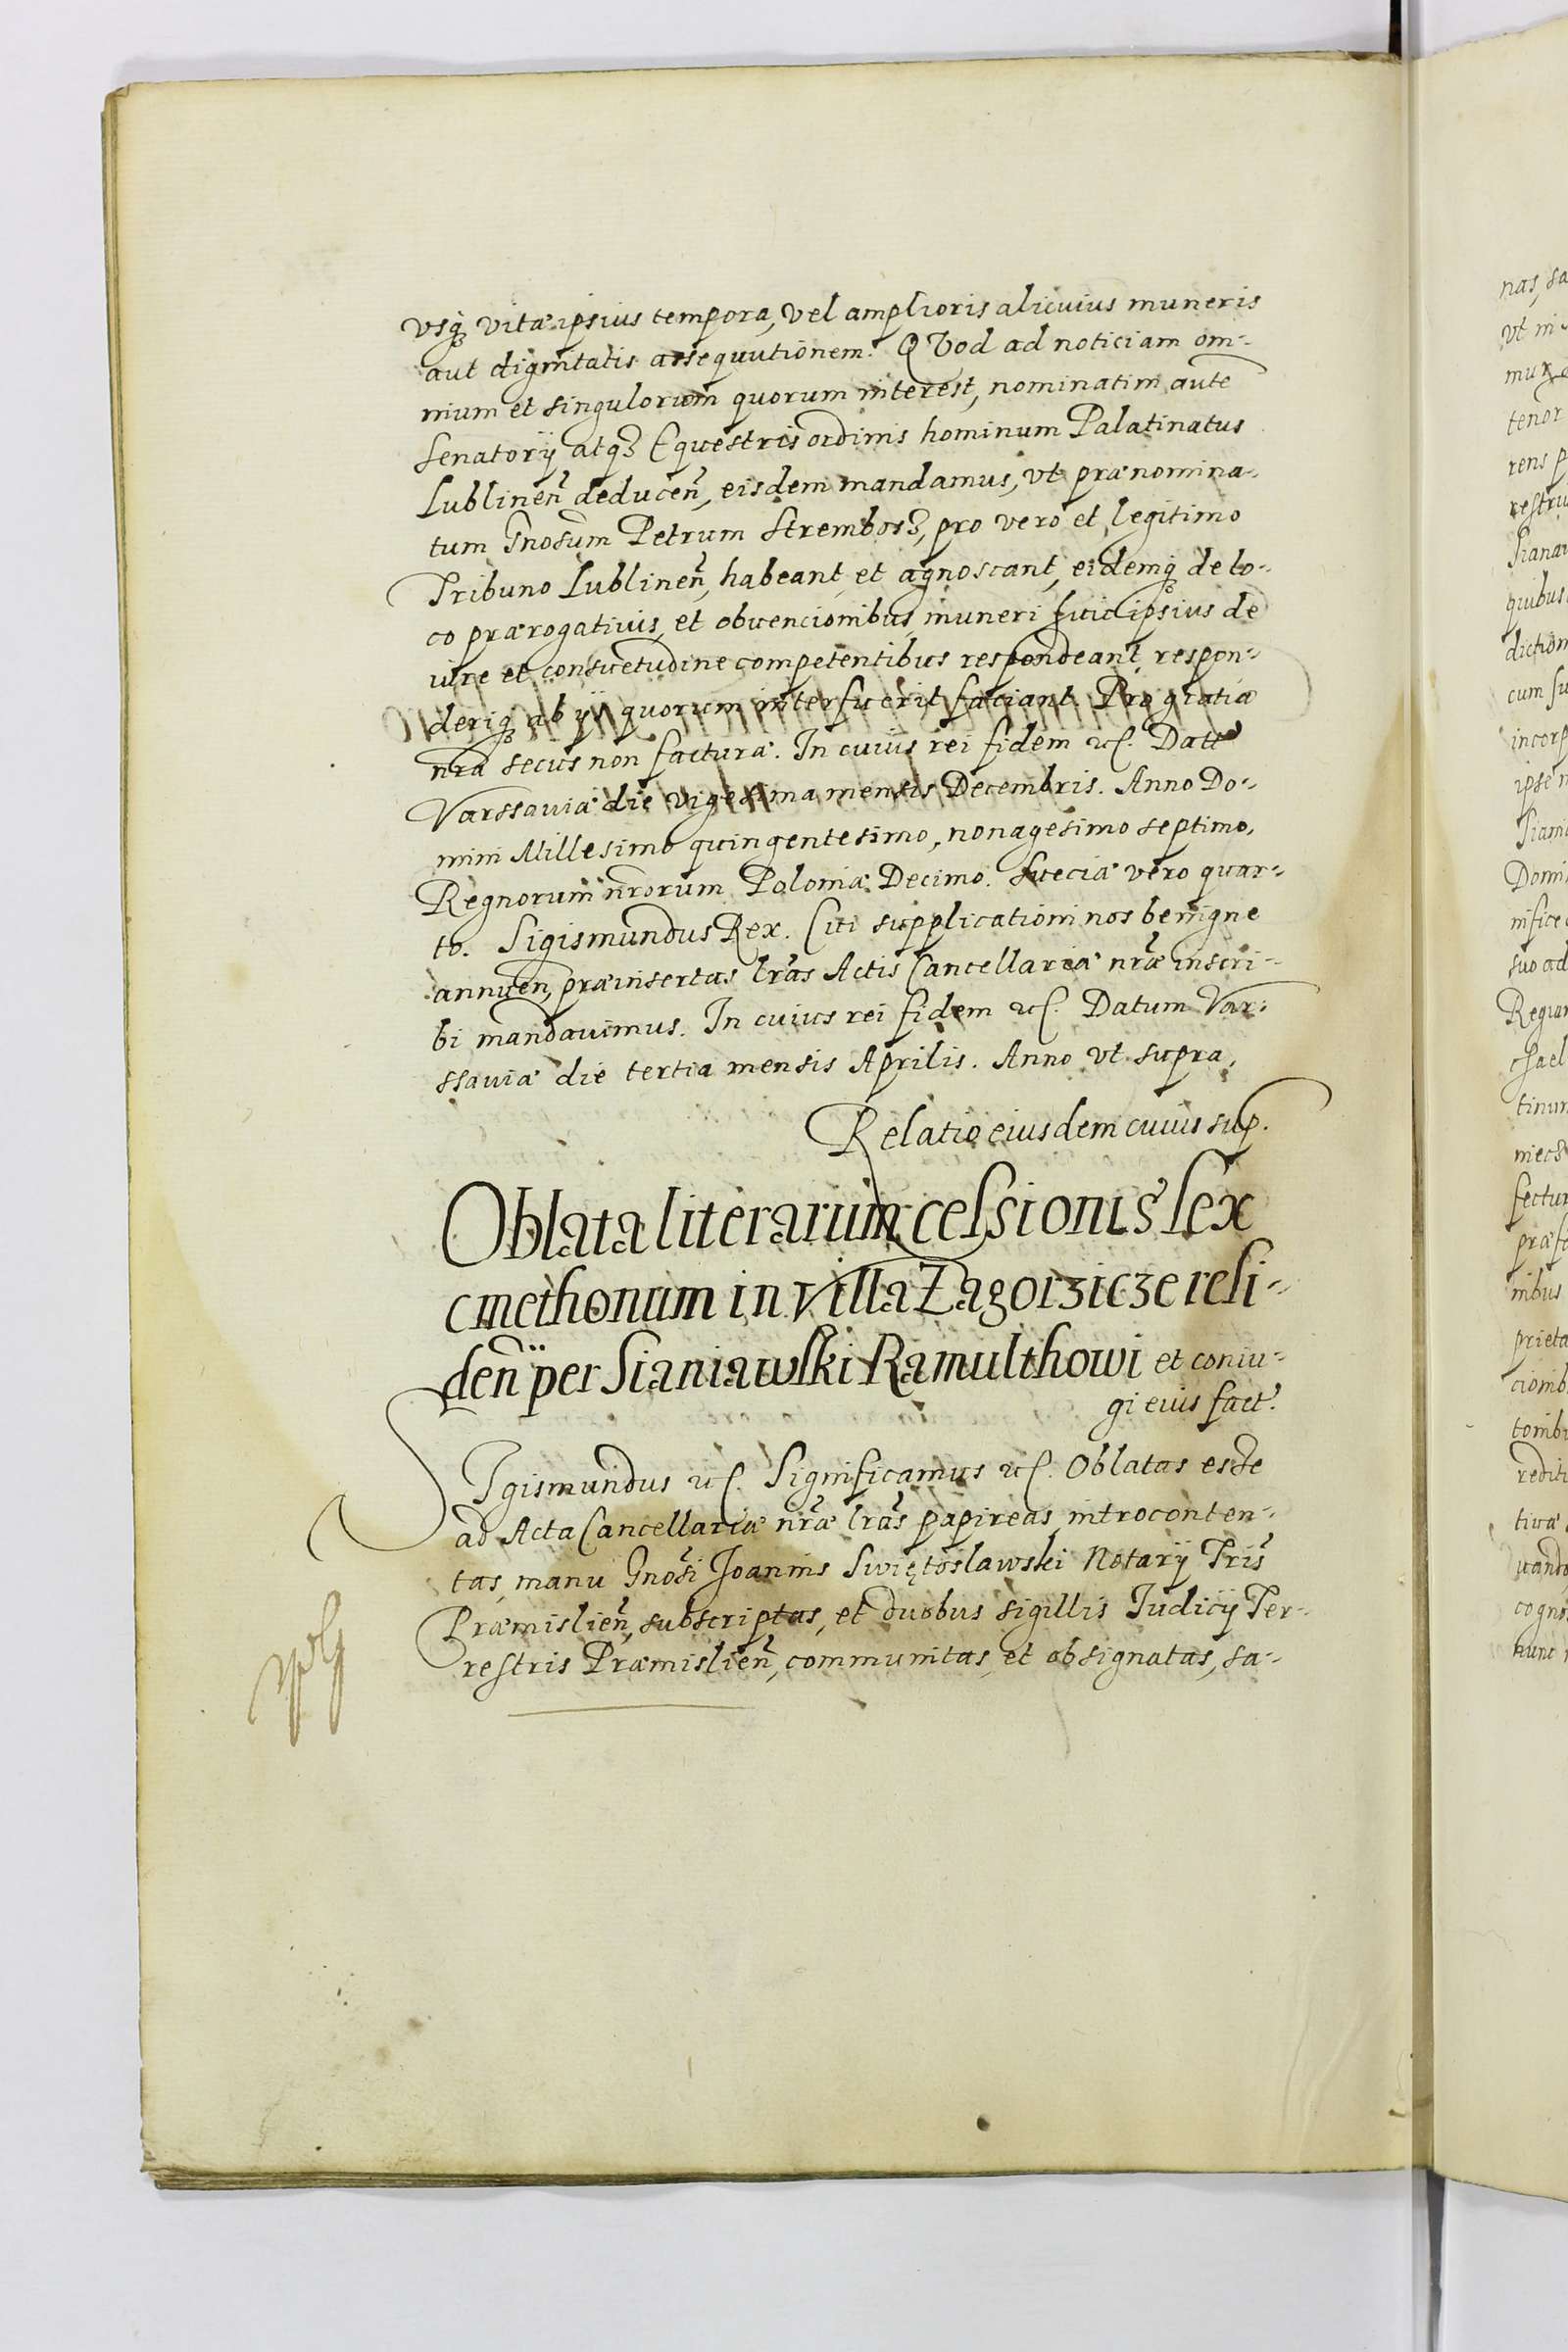 vsq₃ vitæ ipsius tempora, vel amplioris alicuius muneris
aut dignitatis assequutionem. QVod ad noticiam om-
nium et singulorum quorum interest, nominatim aute
Senatorÿ atq₃ Equestris ordinis hominum Palatinatus
Lublinen̄ deducen̄, eisdem mandamus, vt prænomina-
tum Gnosum Petrum Strembos₃, pro vero et legitimo
Tribuno Lublinen̄, habeant, et agnoscant, eidemq₃ de lo-
co prærogatiuis, et obuencionibus, muneri ipsius de
iure et consuetudine competentibus respondeant, respon-
deriq₃ ab ÿs quorum interfuerit faciant. Pro gratia
nrā secus non facturæ. In cuius rei fidem ꝛc. Datt
Varssauiæ die vigesima mensis Decembris. Anno Do-
mini Millesimo quingentesimo, nonagesimo septimo,
Regnorum nrorum Poloniæ Decimo. Sueciæ vero quar-
to. Sigismundus Rex. Cui supplicationi nos benigne
annuen, præinsertas lrās Actis Cancellariæ nrǣ inscri-
bi mandauimus. In cuius rei fidem ꝛc. Datum Var-
ssauiæ die tertia mensis Aprilis. Anno vt supra,
Relatio eiusdem cuius sup.
Oblata literarum cessionis sex
cmethonum in villa Zagorzicze resi-
den̄ per Sianiawski Ramulthowi et coniu-
gi eius fact.
SIgismundus ꝛc. Significamus ꝛc. Oblatas esse
ad Acta Cancellariæ nrǣ lrās papireas, introconten-
tas, manu Gnosi Joannis Swiętoslawski Notarÿ Tris
Præmislien̄, subscriptas, et duobus sigillis Iudicÿ Ter-
restris Præmislien̄, communitas, et obsignatas, sa-
nas, sa
vt in
tenor
rens p
restru
Sianaw
quibus
diction
cum su
incorp
ipse n
Siania
Domi
nifice
suo ad
Regian
chael
tinum
niecz
fectur
præfe
nibus
prieta
cionib
torib
redit
tiuæ
uando
cogno
nunc